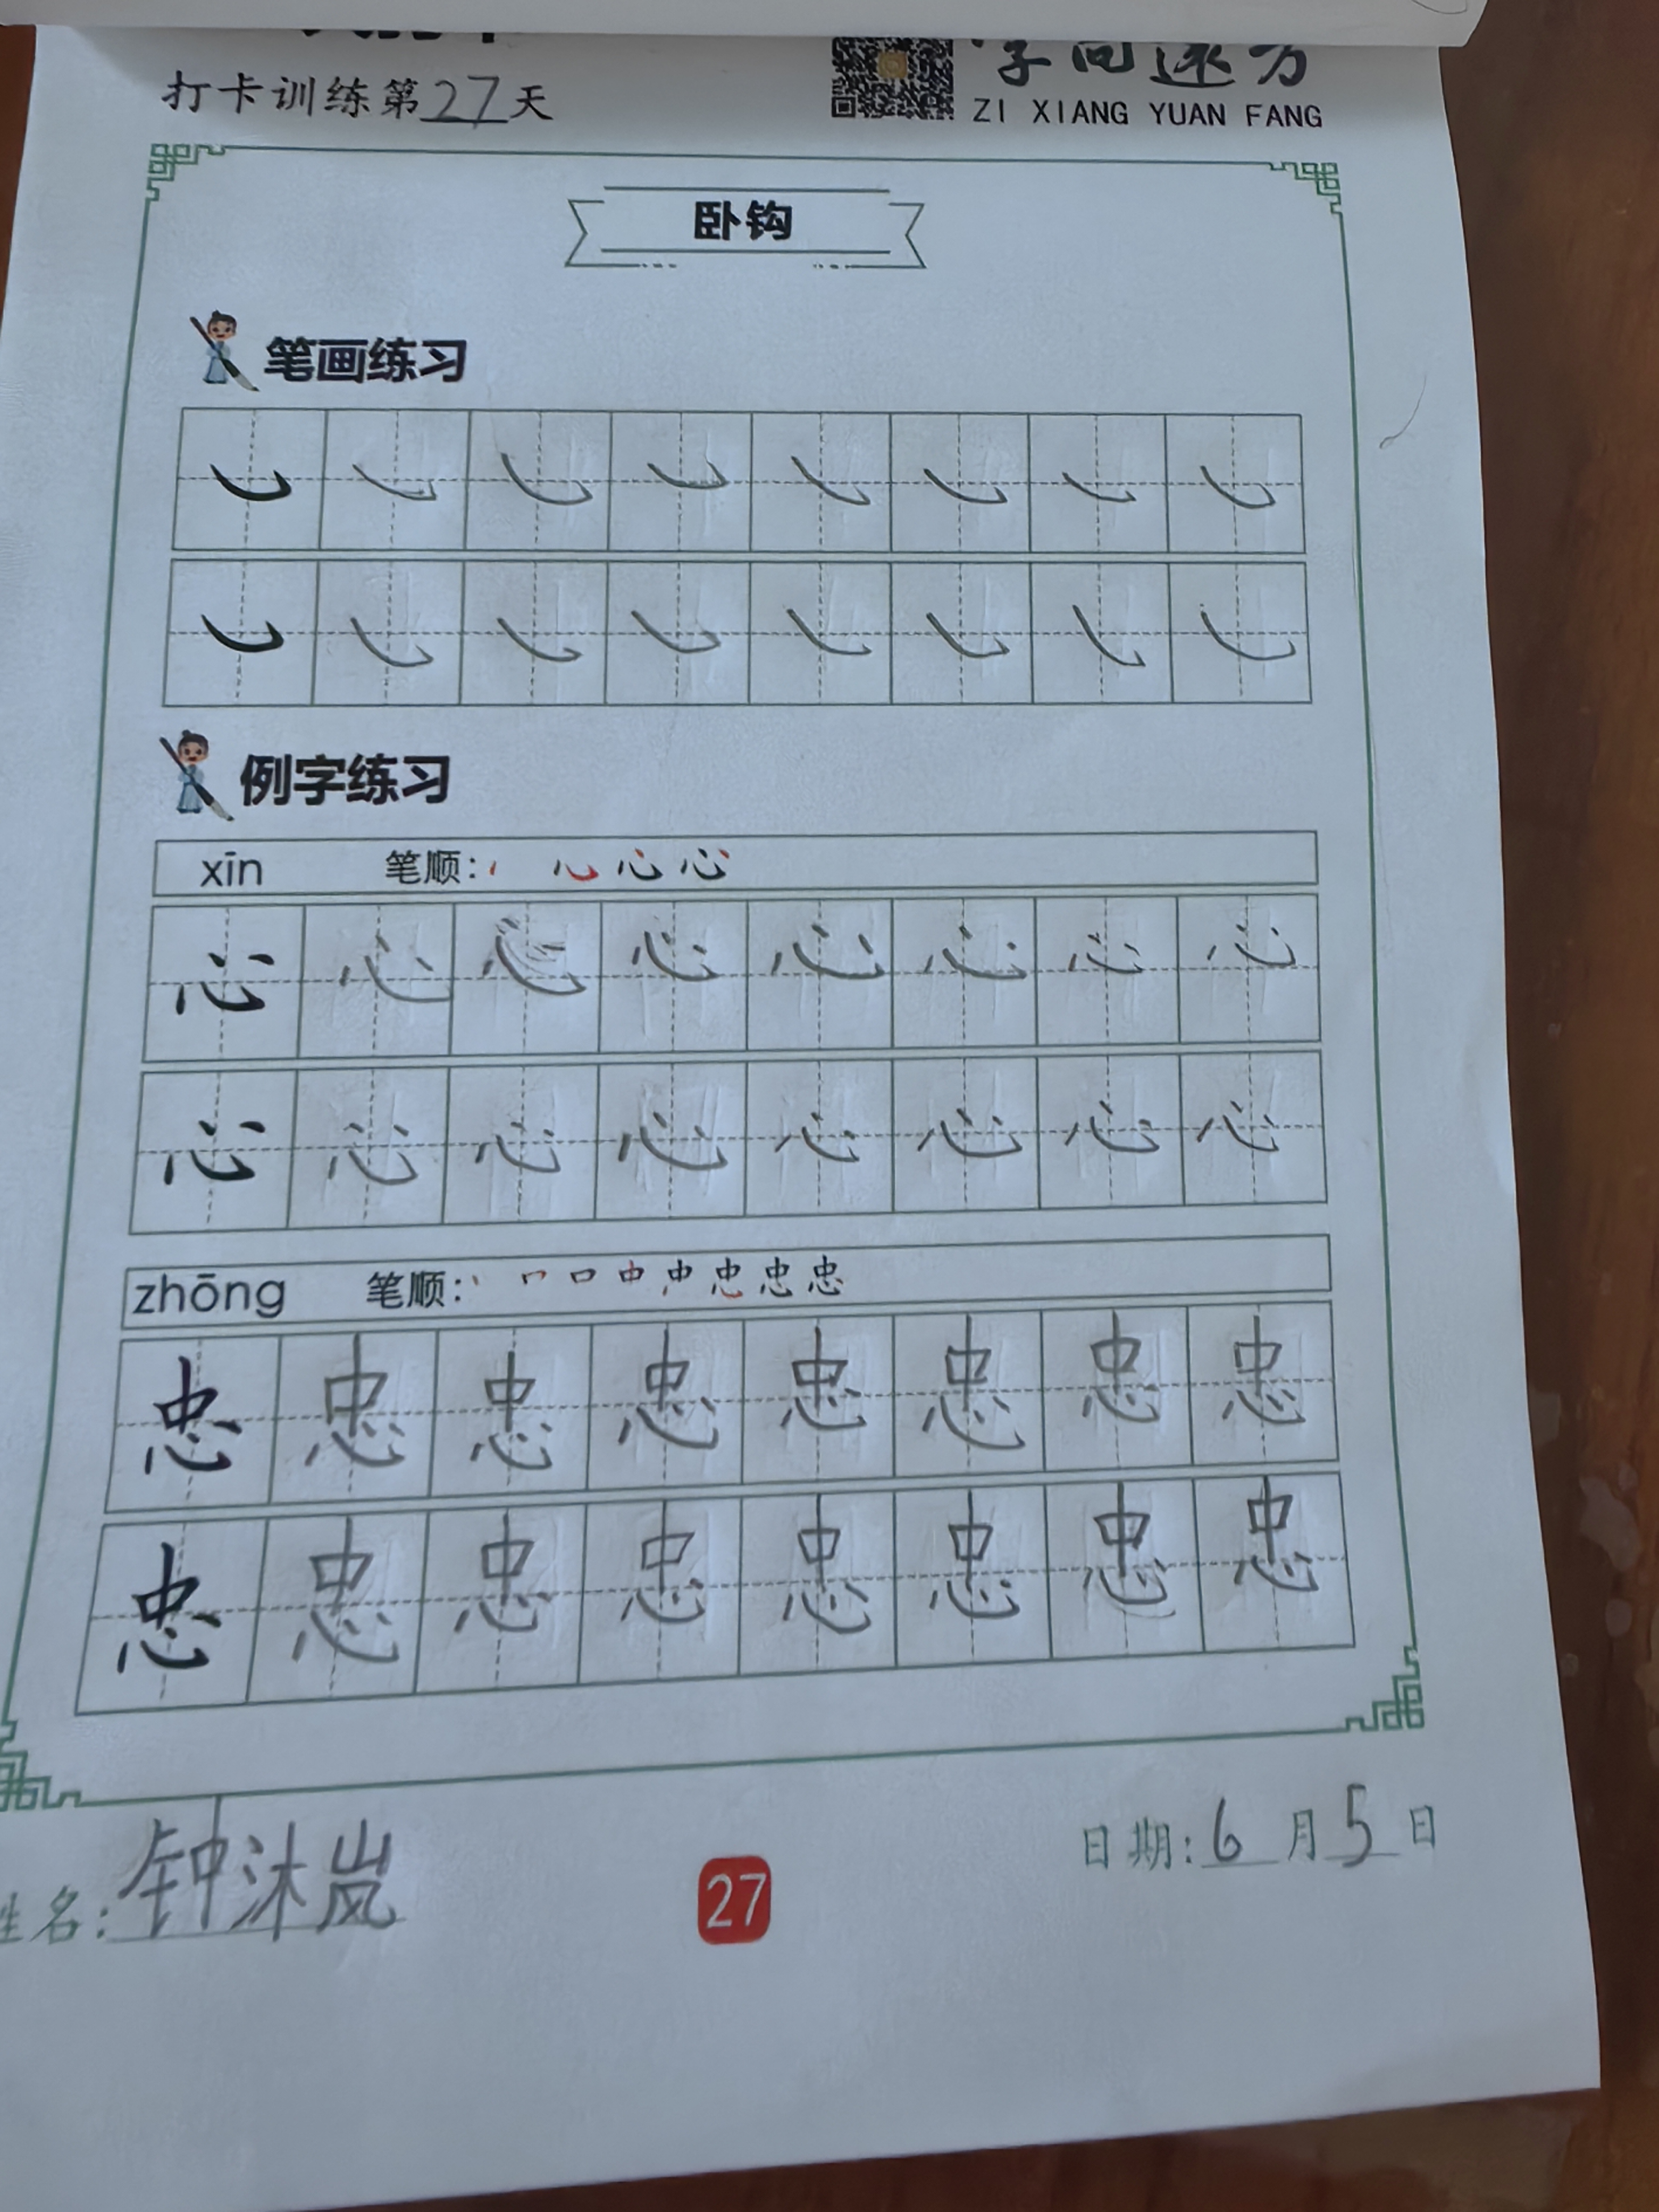 打卡训练第27天
ZI XIANG YUAN FANG
卧钩
笔画练习
例字练习
xīn 笔顺: 心
心 心 心 心 心 心 心 心
心 心 心 心 心 心 心 心
zhōng 笔顺: 丨 口 中 忠 忠 忠
忠 忠 忠 忠 忠 忠 忠 忠
忠 忠 忠 忠 忠 忠 忠 忠
姓名: 钟沐岚
27
日期: 6月5日